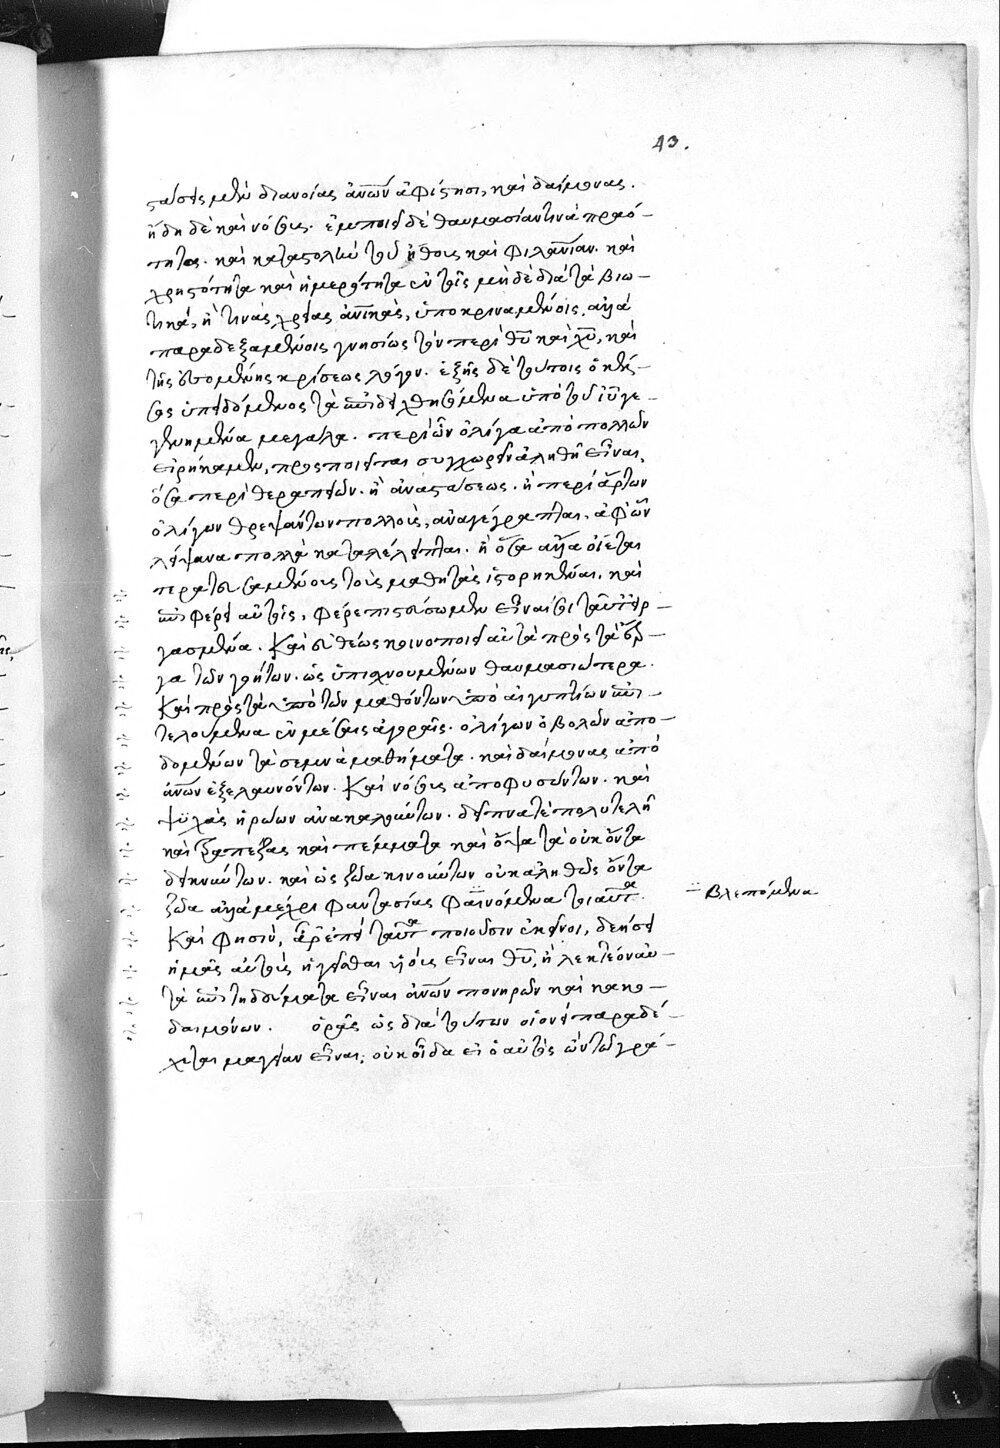 43.
στάσεις μὲν διανοίας ἀνῶν ἀφίστησι, καὶ δαίμονας.
ἤδη δὲ καὶ νόσους. ἐμποιεῖ δὲ θαυμασίαν τινὰ πραό-
τητα. καὶ καταστολὴν τοῦ ἤθους καὶ φιλανίαν. καὶ
χρηστότητα καὶ ἡμερότητα ἐν τοῖς μὴ δὲ διὰ τὰ βιω-
τικὰ, ἤ τινας χρείας ἀνικὰς, ὑποκριναμένοις, ἀλλὰ
παραδεξαμένοις γνησίως τὸν περὶ θῦ καὶ χῦ, καὶ
τῆς ἐσομένης κρίσεως λόγον. ἑξῆς δὲ τούτοις ὁ κέλ-
σος ὑπειδόμενος τὰ ἐπιδειχθησόμενα ὑπὸ τοῦ ιῦ γε-
γενημένα μεγάλα. περὶ ὧν ὀλίγα ἀπὸ πολλῶν
εἰρήκαμεν, προσποιεῖται συγχωρεῖν ἀληθῆ εἶναι,
ὅσα περὶ θεραπειῶν. ἢ ἀναστάσεως. ἢ περὶ ἄρτων
ὀλίγων θρεψάντων πολλοὺς, ἀναγέγραπται. ἀφ' ὧν
λείψανα πολλὰ καταλέλειπται. ἢ ὅσα ἄλλα οἴεται
τερατευσαμένους τοὺς μαθητὰς ἱστορηκέναι. καὶ
ἐπιφέρει αὐτοῖς, φέρε πιστεύσωμεν εἶναί σοι ταῦτ' εἰρ-
γασμένα. Καὶ εὐθέως κοινοποιεῖ αὐτὰ πρὸς τὰ ἔρ-
γα τῶν γοήτων. ὡς ὑπισχνουμένων θαυμασιώτερα.
Καὶ πρὸς τὰ ὑπὸ τῶν μαθόντων ἀπὸ αἰγυπτίων ἐπι-
τελούμενα ἐν μέσαις ἀγοραῖς. ὀλίγων ὀβολῶν ἀπο-
δομένων τὰ σεμνὰ μαθήματα. καὶ δαίμονας ἀπὸ
ἀνῶν ἐξελαυνόντων. Καὶ νόσους ἀποφυσώντων. καὶ
ψυχὰς ἡρώων ἀνακαλούντων. δεῖπνά τε πολυτελῆ
καὶ τραπέζας καὶ πέμματα καὶ ὄψα τὰ οὐκ ὄντα
δεικνύντων. καὶ ὡς ζῶα κινούντων οὐκ ἀληθῶς ὄντα
ζῶα ἀλλὰ μέχρι φαντασίας φαινόμενα τοιαῦτα
βλεπόμενα
Καὶ φησὶν, ἆρ' ἐπεὶ ταῦτα ποιοῦσιν ἐκεῖνοι, δεήσει
ἡμᾶς αὐτοὺς ἡγεῖσθαι υἱοὺς εἶναι θῦ, ἢ λεκτέον αὐ-
τὰ ἐπιτηδεύματα εἶναι ἀνῶν πονηρῶν καὶ κακο-
δαιμόνων. ὁρᾷς ὡς διὰ τούτων οἱονεὶ παραδέ-
χεται μαγείαν εἶναι; οὐκ οἶδα εἰ ὁ αὐτὸς ὢν τῷ γρά-